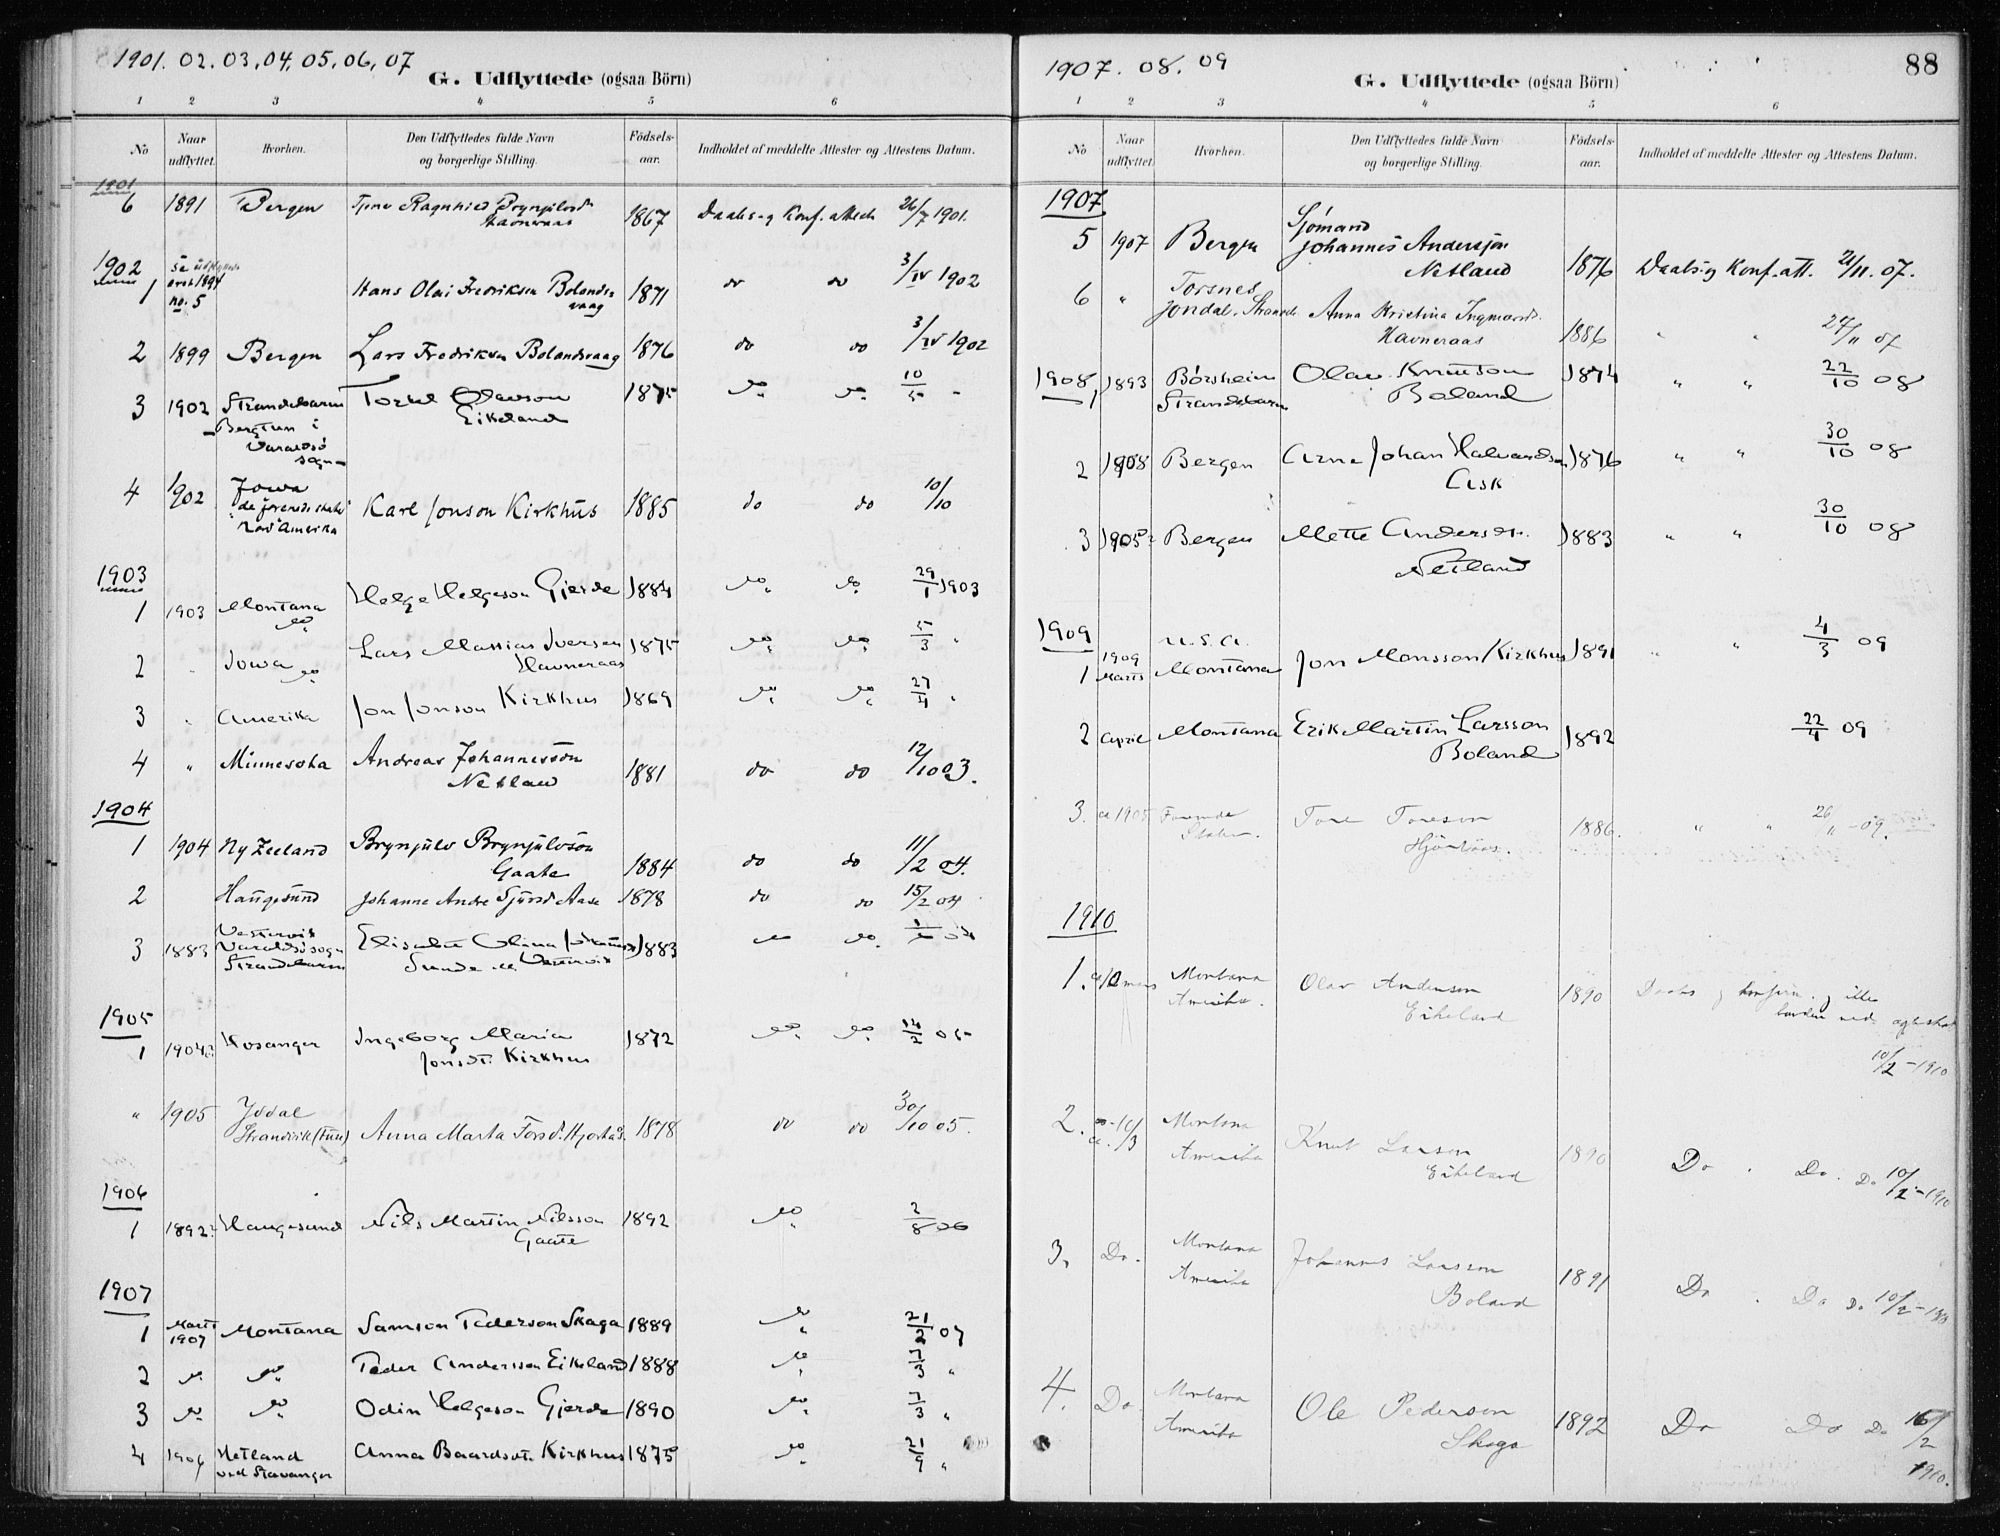 1901. 02. 03, 04, 05, 06, 07
G. Udflyttede (ogsaa Börn)
1 2 3 4 5 6
No
Naar udflyttet.
Hvorhen.
Den Udflyttedes fulde Navn og borgerlige Stilling.
Födsels-aar.
Indholdet af meddelte Attester og Attestens Datum.
1901
6 1891 Bergen Ragnhild 1867 Daabs- og Konf. attest 26/7 1901.
1902
1 no. 5 Hans Olai Fredriksen Bolandsvaag 1871 do do 3/IV 1902
2 1899 Bergen Lars Fredriksen Bolandsvaag 1876 do do 3/IV 1902
3 1902 Strandebarm Torkel Olavson 1875 do do 10/5 -
Bergtun i Eikeland
Varaldsö
sogn
4 1902 Jowa Karl Jonson Kirkhus 1885 do do 10/10
de forenede stater
Nord Amerika
1903
1 1903 Montana Helge Helgeson Gjerde 1884 do do 29/1 1903
2 " Iowa Lars Mattias Iversen 1875 do do 5/3 "
Havneraas
3 " Amerika Jon Jonson Kirkhus 1869 do do 27/4 "
4 " Minnesota Andreas Johannesson 1881 do do 12/10 03.
Netland
1904
1 1904 Ny Zeeland Brynjulv Brynjulvson 1884 do do 11/2 04.
Gaate
2 Haugesund Johanne Andre Sjursd Aase 1878 do do 15/2 04
3 1883 Vestervik 1883 do do 04
Varaldsö sogn
Strandebarm
1905
1 1904 Kosanger Ingeborg Maria 1872 do do 14/2 05
Jonsdt. Kirkhus
" 1905 Strandvik (Fuse) Anna Marta Torsd. Hjortaas. 1878 do do 30/10 05.
1906
1 1892? Haugesund Nils Martin Nilsson 1892 do 2/8 06
Gaate
1907
1 Marts 1907 Montana Samson Pederson Skaga 1889 do 21/2 07
2 do do Peder Andersson Eikeland 1888 do 7/3 "
3 do do Odin Helgeson Gjerde 1890 do 7/3 "
4 1906 Hetland Anna Baardsdt. Kirkhus 1875 do 21/9 "
ved Stavanger
1907. 08. 09
88
G. Udflyttede (ogsaa Börn)
1 2 3 4 5 6
No
Naar udflyttet.
Hvorhen.
Den Udflyttedes fulde Navn og borgerlige Stilling.
Födsels-aar.
Indholdet af meddelte Attester og Attestens Datum.
1907
Sjømand
5 1907 Bergen Johannes Andersson 1876 Daabs- og Konf. att. 21/11. 07.
Netland
6 " Torsnes
Jondal. Anna Kristina Ingmarsdt. 1886 " " 27/11 07
Havneraas
1908
1 1893 Børsheim Olav Knutson 1874 " " 22/10 08
Strandebarm Boland
2 1908 Bergen Arne Johan Halvardson 1876 " " 30/10 08
Ask
3 1905? Bergen Mette Andersdt. 1883 " " 30/10 08
Netland
1909
1 1909 Marts U.S.A. Montana Jon Monsson Kirkhus 1891 " " 4/3 09
2 April Montana Erik Martin Larsson 1892 22/4 09
Boland
3. ca 1905 Forenede Tore Toreson 1886. " " 26/11 - 09.
Stater. Hjortaas.
1910
1. Montana Olav Anderson 1890 Daabs og konfirm. og
Amerika. Eikeland
10/2 - 1910
2. Montana Knut Larson 1890 Do Do. Do 10/2 - 1910
Amerika Eikeland
3. Do. Montana Johannes Larsson 1891 Do Do Do 10/2 - 1910
Amerika Boland
4. Do. Montana Ole Pederson 1892 Do Do Do 16/2
Amerika Skaga 1910.